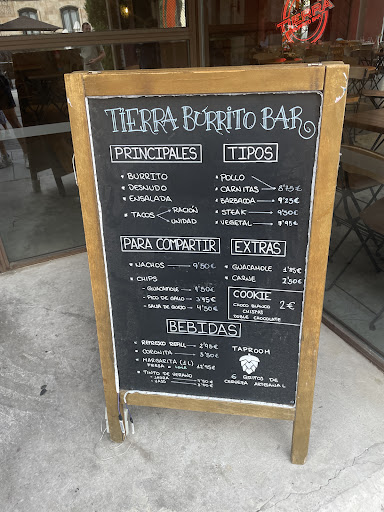 TIERRA BURRITO BAR
PRINCIPALES
• BURRITO
• DESNUDO
• ENSALADA
• TACOS RACIÓN
UNIDAD
TIPOS
• POLLO
• CARNITAS 8'75€
• BARBACOA 9'25€
• STEAK 9'50€
• VEGETAL 8'95€
PARA COMPARTIR
• NACHOS 9'50€
• CHIPS
- GUACAMOLE
- PICO DE GALLO 3'95€
- SALSA DE QUESO 4'50€
EXTRAS
• GUACAMOLE
• CARNE 2'50€
COOKIE
CHOCO BLANCO
CHISPAS
DOBLE CHOCOLATE
2€
BEBIDAS
• REFRESCO REFILL
• CORONITA
• MARGARITA (1L)
FRESA - LIMA
• TINTO DE VERANO
- JARRA
- VASO
TAPROOM
6 GRIFOS DE
CERVEZA ARTESANAL